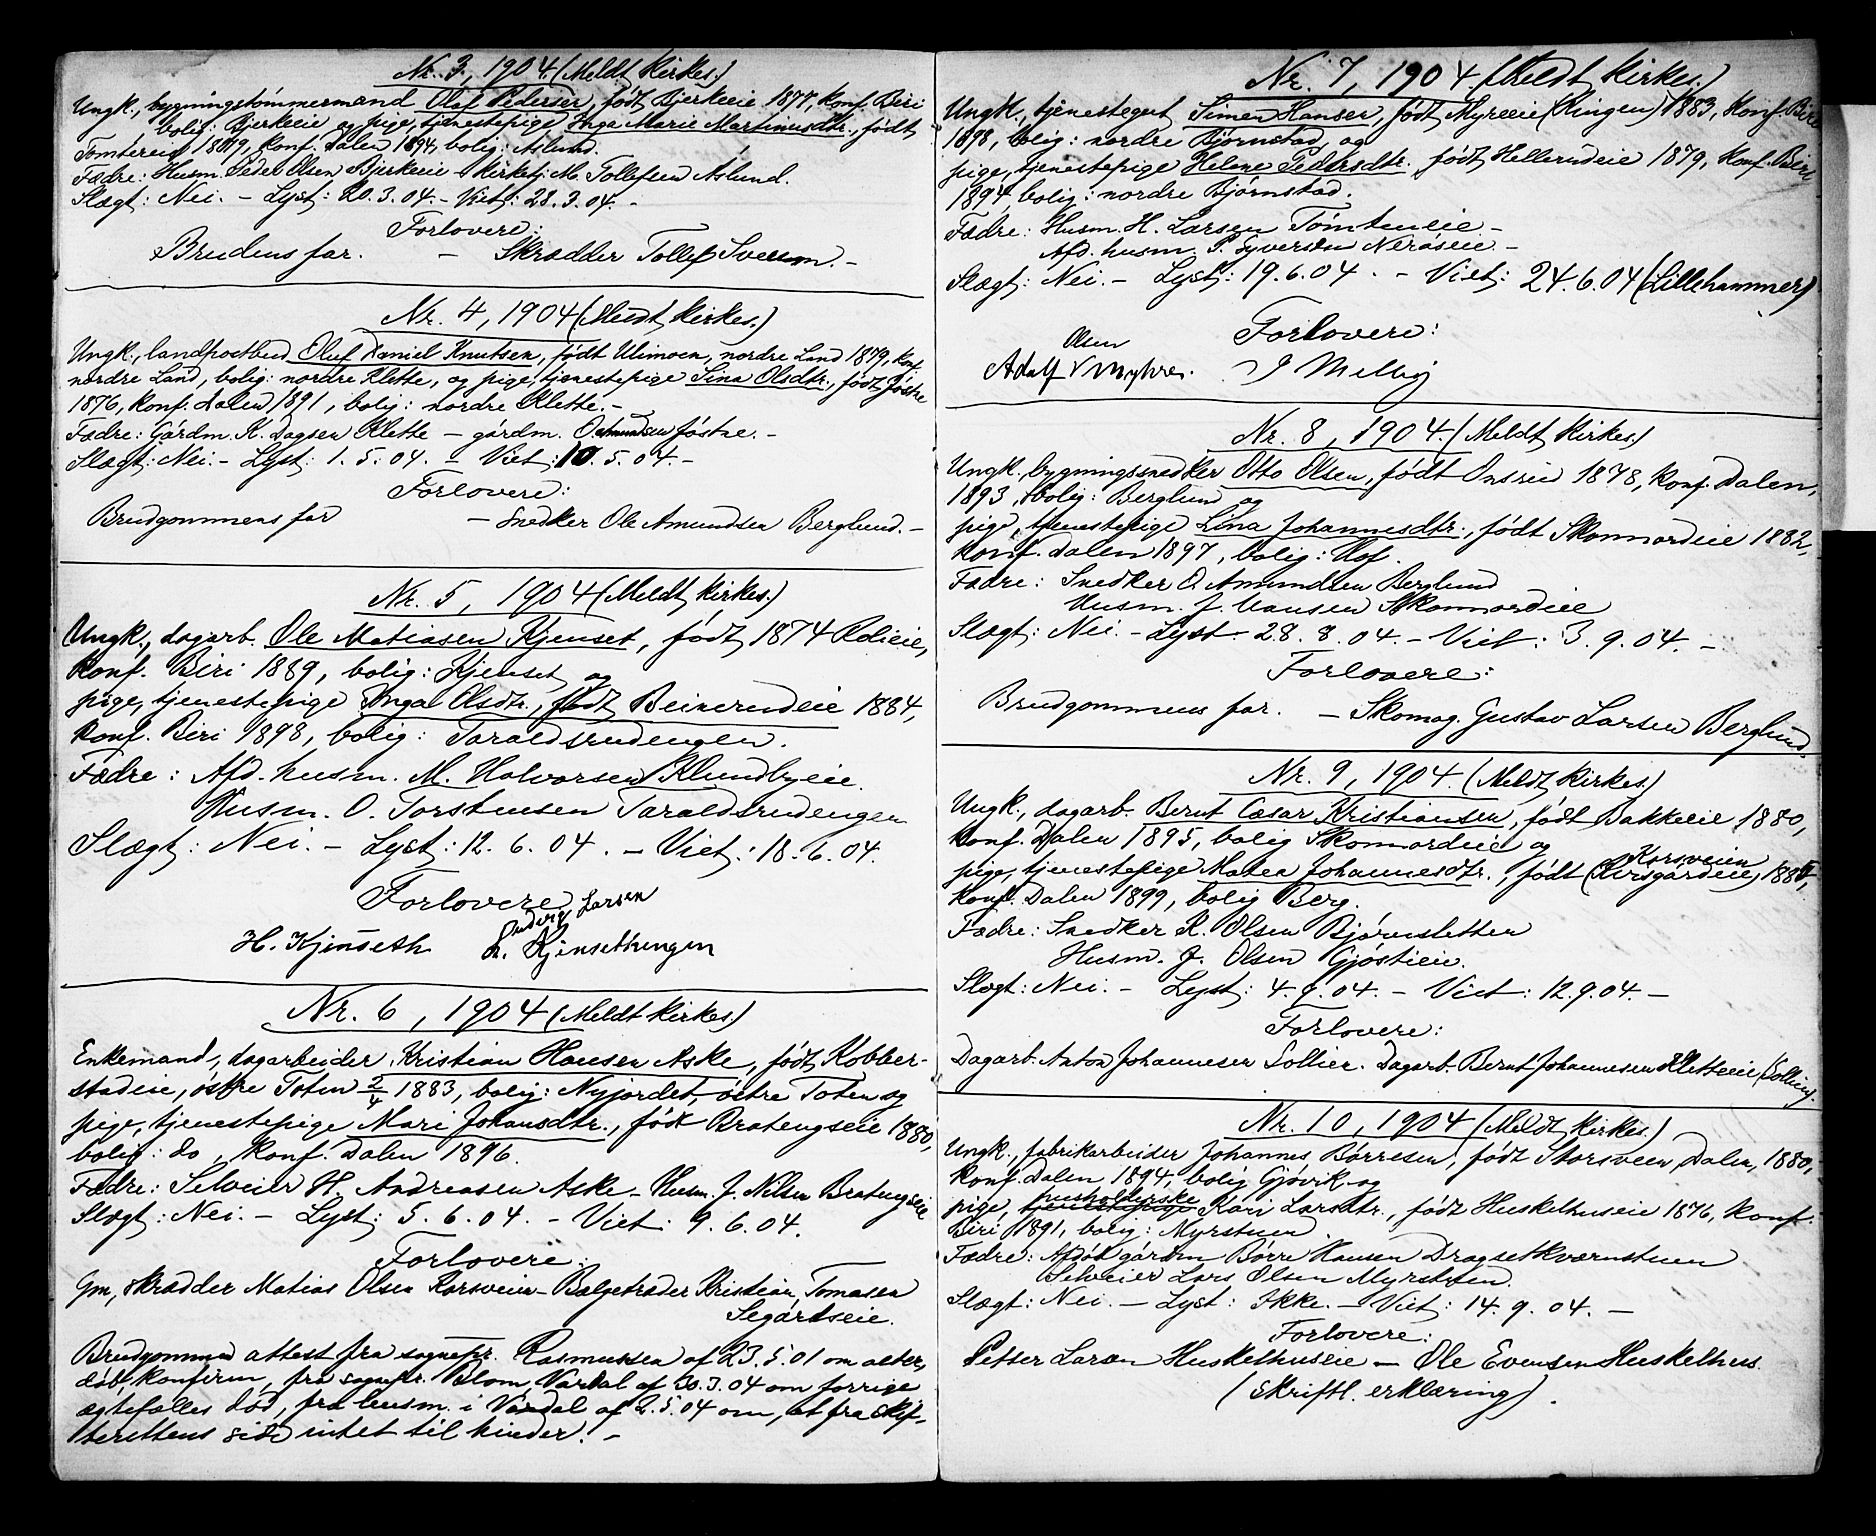 Nr. 3, 1904. (Meldt kirkes.)
Ungk., bygningstømmermand Olaf Pedersen, født Bjerkeeie 1877, konf. Biri
bolig: Bjerkeeie og pige, tjenestepige Inga Marie Martinusdtr., født
Tomtereie 1879, konf. Dalen 1894, bolig: Aslund.
Fædre: Husm. Peder Olsen Bjerkeeie – kirketj. M. Tollefsen Aslund.
Slægt: Nei. – Lyst: 20.3.04. – Viet: 28.3.04. –
Forlovere:
Brudens far. – Skrædder Tollef Svensen. –
Nr. 4, 1904 (Meldt kirkes.)
Ungk., landpostbud Oluf Daniel Knutsen, født Ulimoen, nordre Land 1879, konf.
nordre Land, bolig: nordre Klette, og pige, tjenestepige Lina Olsdtr., født Jøstne
1876, konf. Dalen 1891, bolig: nordre Klette. –
Fædre: Gårdm. K. Dagsen Klette – gårdm. O. Amundsen Jøstne. –
Slægt: Nei. – Lyst: 1.5.04. – Viet: 10.5.04. –
Forlovere:
Brudgommens far – Snedker Ole Amundsen Berglund. –
Nr. 5, 1904 (Meldt kirkes.)
Ungk., dagarb. Ole Matiasen Kjenset, født 1874 Rolieie,
konf. Biri 1889, bolig: Kjenset og
pige, tjenestepige Inga Olsdtr., født Beinerudeie 1884,
konf. Biri 1898, bolig: Taraldsrudengen.
Fædre: Afd. husm. M. Halvorsen Klundbyeie.
Husm. O. Torstensen Taraldsrudengen
Slægt: Nei. – Lyst: 12.6.04. – Viet: 18.6.04.
Forlovere
Ludvig Larsen
H. Kjenseth L. Kjensethengen
Nr. 6, 1904 (Meldt kirkes.)
Enkemand, dagarbeider Kristian Hansen Aske, født Kobber-
stadeie, østre Toten 2/4 1883, bolig: Nyjordet, østre Toten og
pige, tjenestepige Mari Johansdtr., født Bratengseie 1880,
bolig: do, konf. Dalen 1896.
Fædre: Selveier H. Andreasen Aske – Husm. J. Nilsen Bratengseie
Slægt: Nei. – Lyst: 5.6.04. – Viet: 9.6.04.
Forlovere:
Gm, skrædder Matias Olsen Korsveien – Bælgetræder Kristian Tomasen
Segårdseie.
Brudgommens attest fra sognepr. Rasmussen af 23.5.01 om alder,
dåb, konfirm, fra sognepr. Blom, Vardal af 30.3.04 om forrige
ægtefælles død, fra lensm. i Vardal af 2.5.04 om, at fra skif-
terettens side intet til hinder. –
Nr. 7, 1904 (Meldt kirkes.)
Ungk., tjenestegut Simen Hansen, født Myreeie (Ringen) 1883, konf. Biri
1898, bolig: nordre Bjørnstad, og
pige, tjenestepige Helene Pedersdtr., født Hellerudeie 1879, konf. Biri
1894, bolig: nordre Bjørnstad.
Fædre: Husm. H. Larsen Tømteneie –
Afd. husm. P. Syversen Neråseie –
Slægt: Nei. – Lyst: 19.6.04. – Viet: 24.6.04 (Lillehammer)
Forlovere:
Olsen
Adolf V Myhre. J Melby
Nr. 8, 1904. (Meldt kirkes.)
Ungk. bygningssnedker Otto Olsen, født Onsrud 1878, konf. Dalen,
1893, bolig: Berglund og
pige, tjenestepige Lina Johannesdtr., født Skonnordeie 1882,
konf. Dalen 1897, bolig: Hof.
Fædre: Snedker O. Amundsen Berglund
Husm. J. Hansen Skonnordeie
Slægt: Nei. – Lyst – 28.8.04. – Viet: 3.9.04. –
Forlovere:
Brudgommens far. – Skomag. Gustav Larsen Berglund.
Nr. 9, 1904. (Meldt kirkes.)
Ungk., dagarb. Bernt Cæsar Kristiansen, født Bakkeeie 1880,
konf. Dalen 1895, bolig Skonnordeie og
Korsveien
pige, tjenestepige Matea Johannesdtr., født 1884,
konf. Dalen 1899, bolig Berg.
Fædre: Snedker K. Olsen Bjørnsletten
Husm. J. Olsen Gjøstieie.
Slægt: Nei. – Lyst: 4.9.04. – Viet: 12.9.04. –
Forlovere:
Dagarb. Anton Johannesen Sollien. Dagarb. Bernt Johannesen Kletteeie (Sollien).
Nr. 10, 1904 (Meldt kirkes.)
Ungk., fabrikarbeider Johannes Børresen, født Storsveen, Dalen, 1880,
konf. Dalen 1894, bolig Gjøvik og
husholderske
pige, tjenestepige Kari Larsdtr., født Huskelhuseie 1876, konf.
Biri 1891, bolig: Myrstuen.
Fædre: Afdøde gårdm Børre Hansen Dragsetkvernstuen
Selveier Lars Olsen Myrstuen.
Slægt: Nei. – Lyst: Ikke. – Viet: 14.9.04. –
Forlovere:
Petter Larsen Huskelhuseie – Ole Evensen Huskelhus.
(skriftl. erklæring).